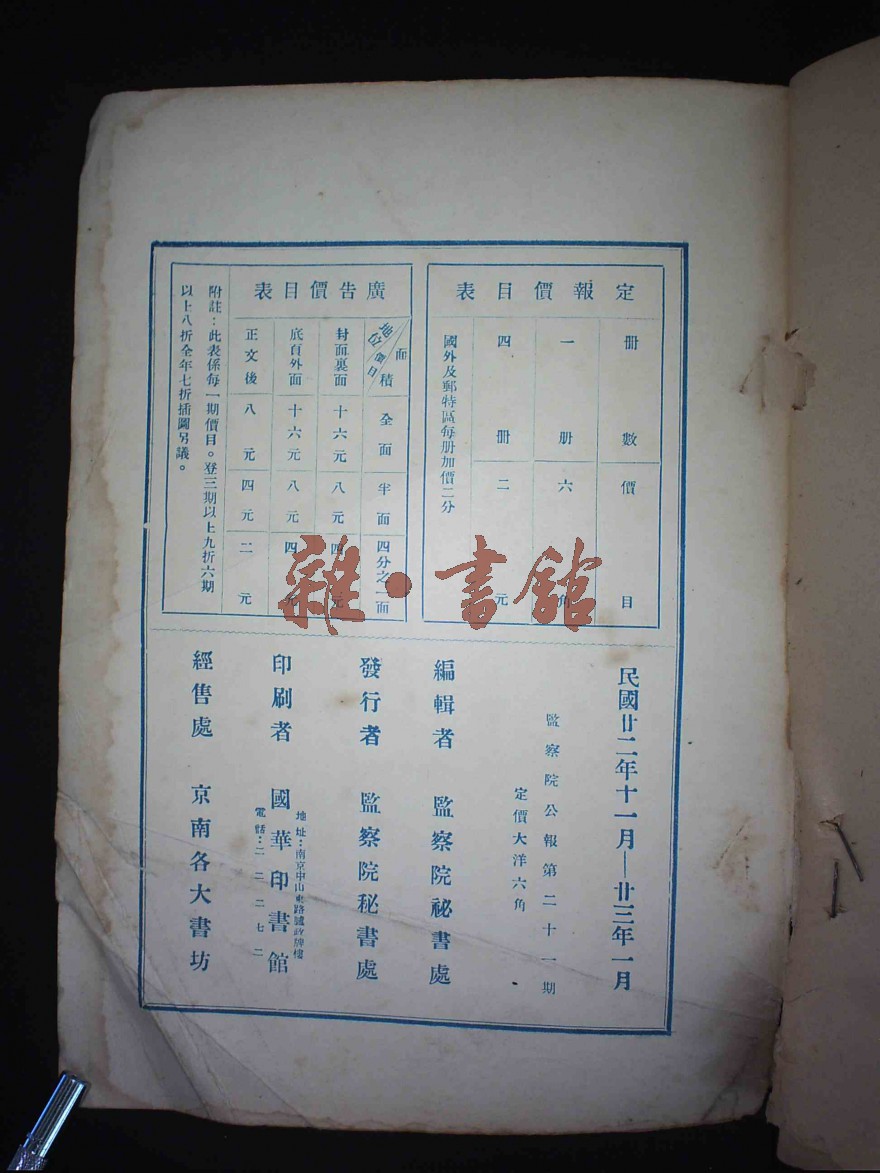 定報價目表
冊數 價目
一冊 六角
四冊 二元
國外及郵特區每册加價二分
廣告價目表
面積 地位 價目 全面 半面 四分之一面
封面裏面 十六元 八元 四元
底頁外面 十六元 八元 四元
正文後 八元 四元 二元
附註：此表係每一期價目。登三期以上九折六期
以上八折全年七折插圖另議。
民國廿二年十一月—廿三年一月
監察院公報第二十一期
定價大洋六角
編輯者 監察院祕書處
發行者 監察院秘書處
印刷者 國華印書館
地址：南京中山東路盧政牌樓
電話：二二二七二
經售處 京南各大書坊
雜·書館